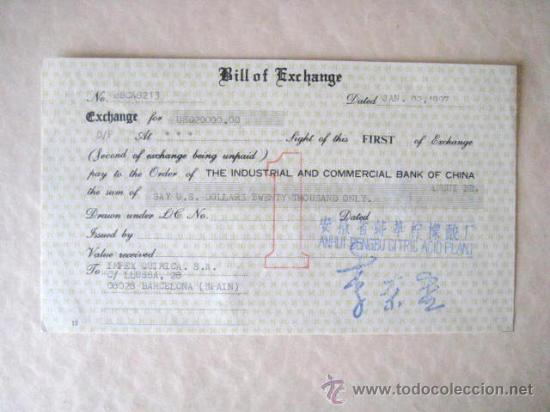 Bill of Exchange
No. Dated JAN. 1997
Exchange for USD20000.00
D/P At * * * Sight of this FIRST of Exchange
(Second of exchange being unpaid)
pay to the Order of THE INDUSTRIAL AND COMMERCIAL BANK OF CHINA
the sum of SAY U.S. DOLLARS TWENTY THOUSAND ONLY.
Drawn under L/C No. Dated
安徽省蚌埠柠檬酸厂
Issued by ANHUI BENGBU CITRIC ACID PLANT
Value received
To IMPEX QUIMICA. S.A.
C/ LLUSSA, 28
08028 BARCELONA (SPAIN)
1
© www.todocoleccion.net